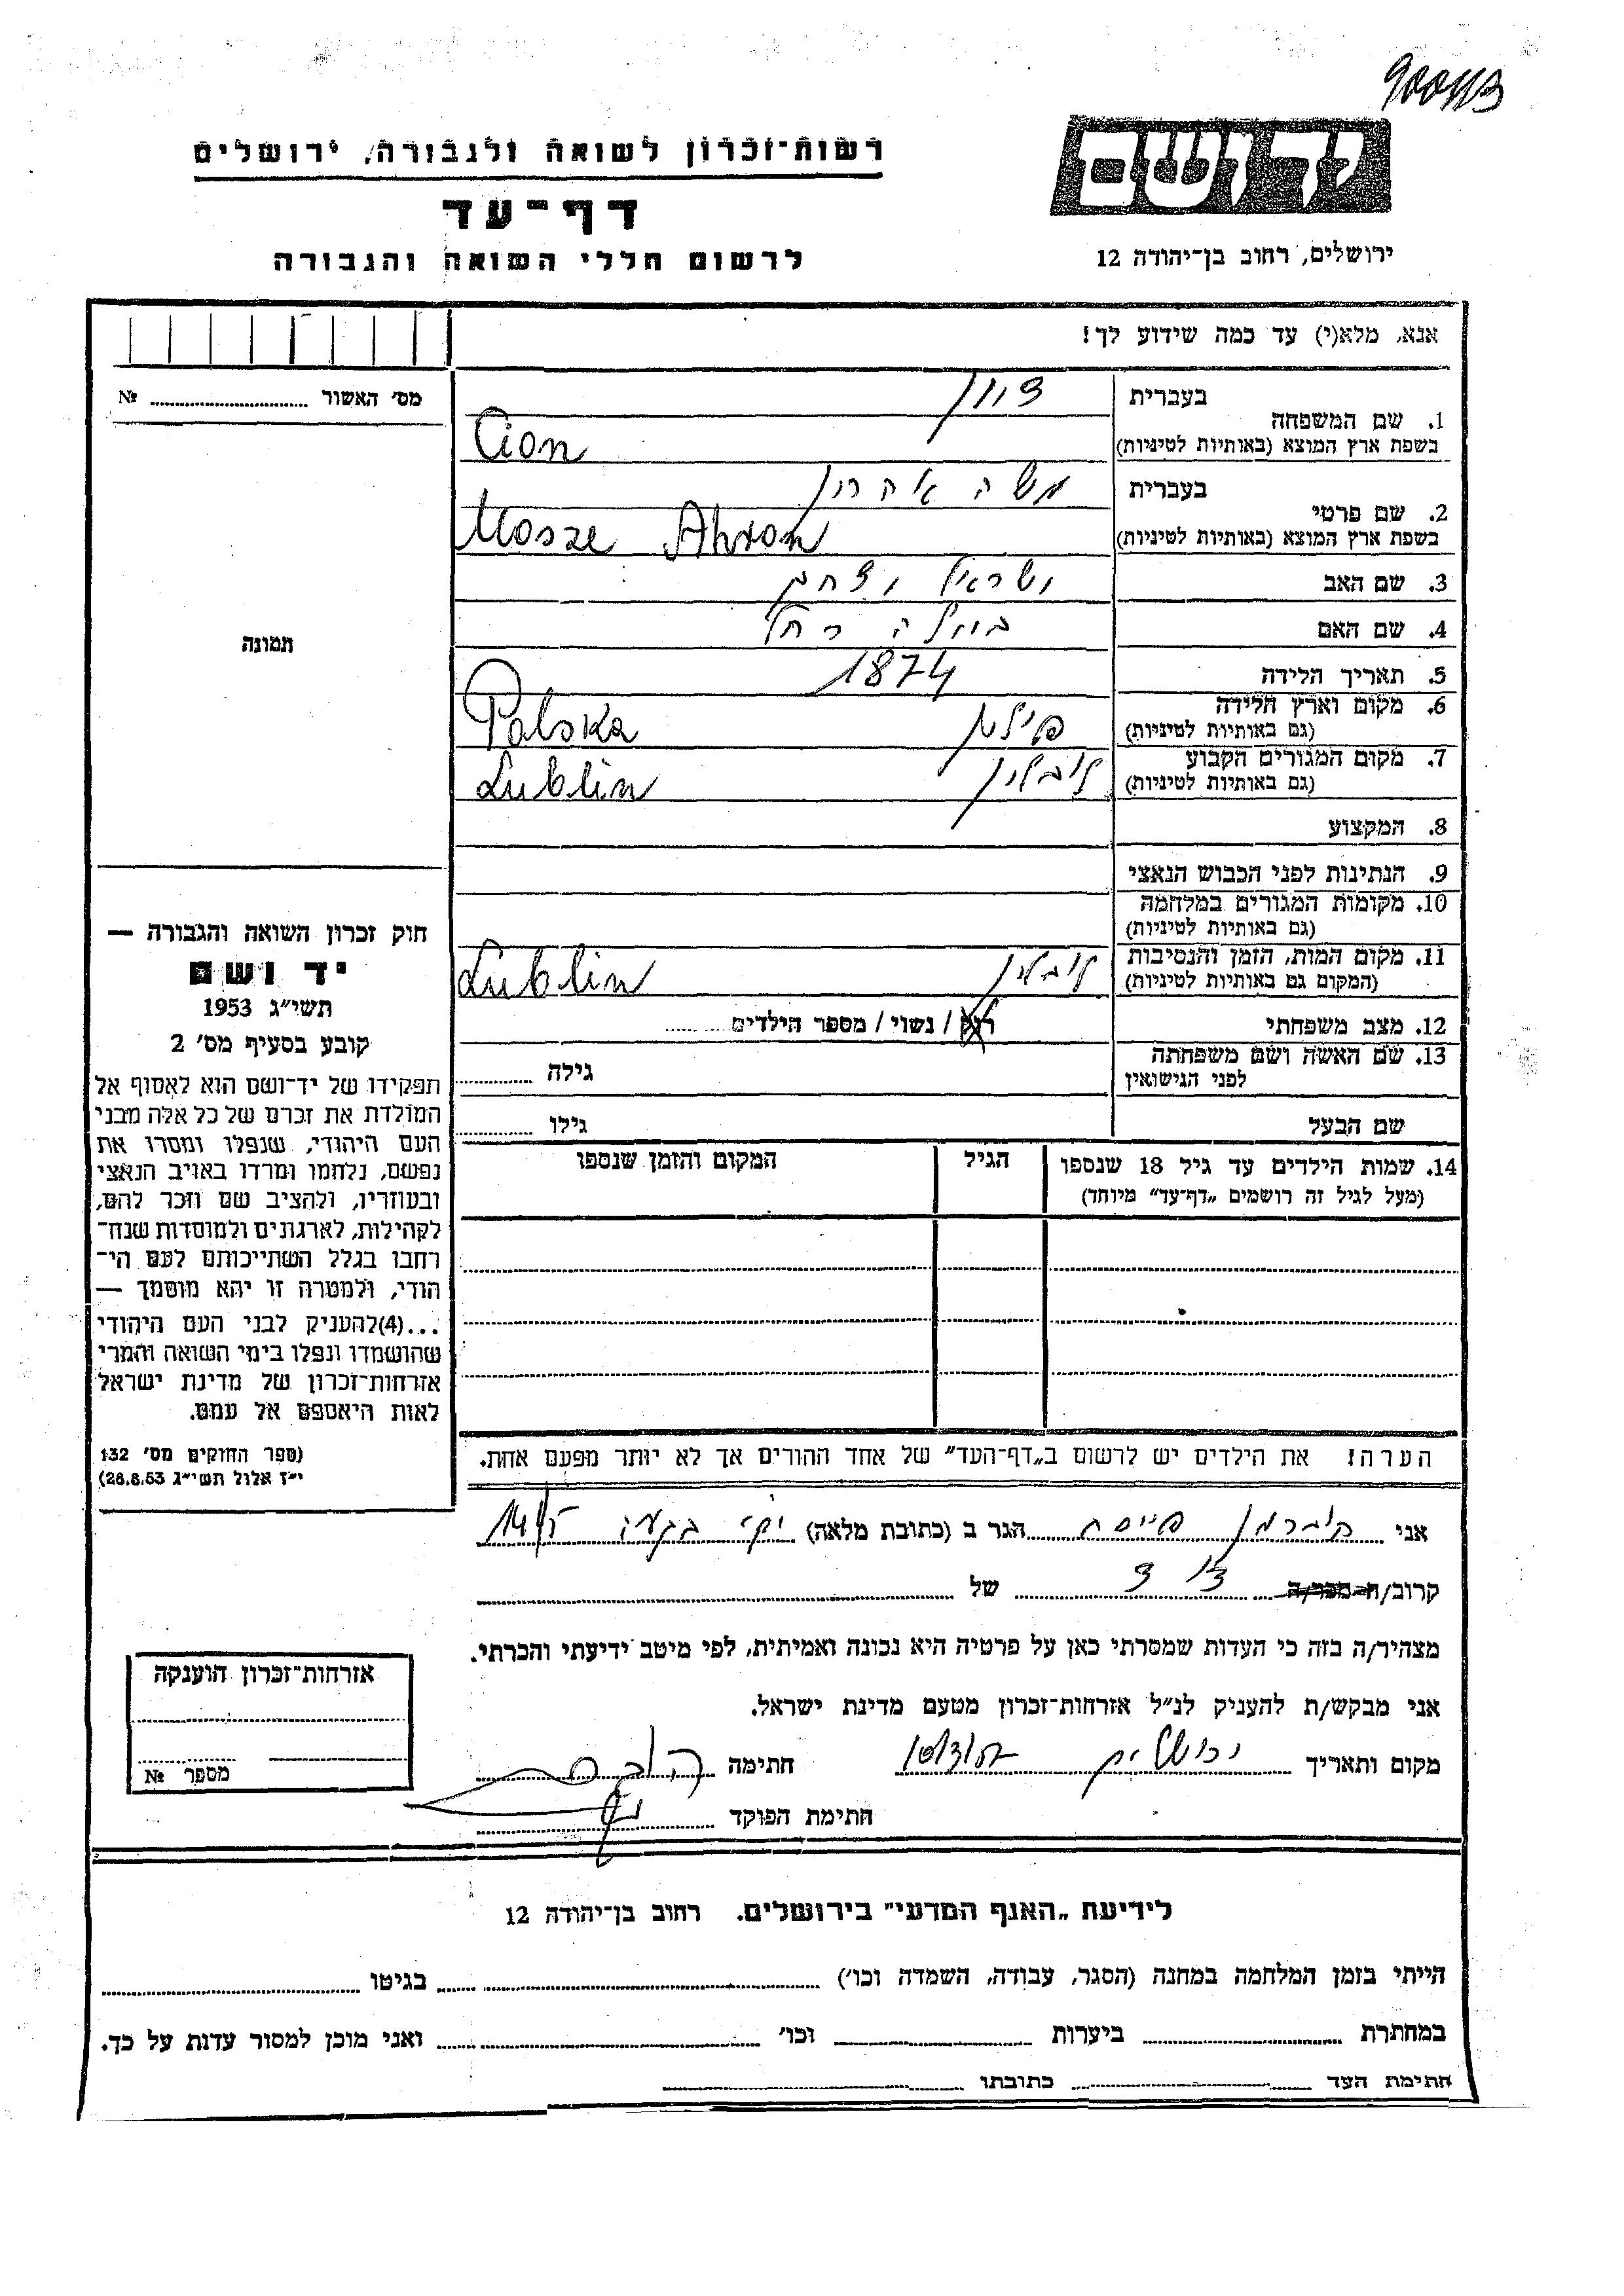 יד ושם
ירושלים, רחוב בן־יהודה 12
רשות־זכרון לשואה ולגבורה, ירושלים
דף־עד
לרשום חללי השואה והגבורה
אנא, מלא(י) עד כמה שידוע לך!
מס' האשור № 
1. שם המשפחה בעברית ציון
בשפת ארץ המוצא (באותיות לטיניות) Cion
2. שם פרטי בעברית משה אהרון
בשפת ארץ המוצא (באותיות לטיניות) Mosze Ahron
3. שם האב ישראל יצחק
4. שם האם ביילה רחל
5. תאריך הלידה 1874
6. מקום וארץ הלידה (גם באותיות לטיניות) פולין Polska
7. מקום המגורים הקבוע (גם באותיות לטיניות) לובלין Lublin
8. המקצוע
9. הנתינות לפני הכבוש הנאצי
10. מקומות המגורים במלחמה (גם באותיות לטיניות)
11. מקום המות, הזמן והנסיבות (המקום גם באותיות לטיניות) לובלין Lublin
12. מצב משפחתי רוק / נשוי / מספר הילדים
13. שם האשה ושם משפחתה לפני הנישואין גילה
שם הבעל גילו
14. שמות הילדים עד גיל 18 שנספו הגיל המקום והזמן שנספו
(מעל לגיל זה רושמים „דף־עד" מיוחד)
הערה! את הילדים יש לרשום ב„דף־העד" של אחד ההורים אך לא יותר מפעם אחת.
תמונה
חוק זכרון השואה והגבורה —
יד ושם
תשי"ג 1953
קובע בסעיף מס' 2
תפקידו של יד־ושם הוא לאסוף אל
המולדת את זכרם של כל אלה מבני
העם היהודי, שנפלו ומסרו את
נפשם, נלחמו ומרדו באויב הנאצי
ובעוזריו, ולהציב שם וזכר להם,
לקהילות, לארגונים ולמוסדות שנח־
רבו בגלל השתייכותם לעם הי־
הודי, ולמטרה זו יהא מוסמך —
...(4)להעניק לבני העם היהודי
שהושמדו ונפלו בימי השואה והמרי
אזרחות־זכרון של מדינת ישראל
לאות היאספם אל עמם.
(ספר החוקים מס' 132
י"ז אלול תשי"ג 28.8.53)
אני הוברמן הגר ב (כתובת מלאה)
קרוב/ה מכר/ה של
מצהיר/ה בזה כי העדות שמסרתי כאן על פרטיה היא נכונה ואמיתית, לפי מיטב ידיעתי והכרתי.
אני מבקש/ת להעניק לנ"ל אזרחות־זכרון מטעם מדינת ישראל.
מקום ותאריך ירושלים חתימה
חתימת הפוקד
אזרחות־זכרון הוענקה
מספר №
לידיעת „האגף המדעי" בירושלים. רחוב בן־יהודה 12
הייתי בזמן המלחמה במחנה (הסגר, עבודה, השמדה וכו') בגיטו
במחתרת ביערות וכו' ואני מוכן למסור עדות על כך.
חתימת העד כתובתו